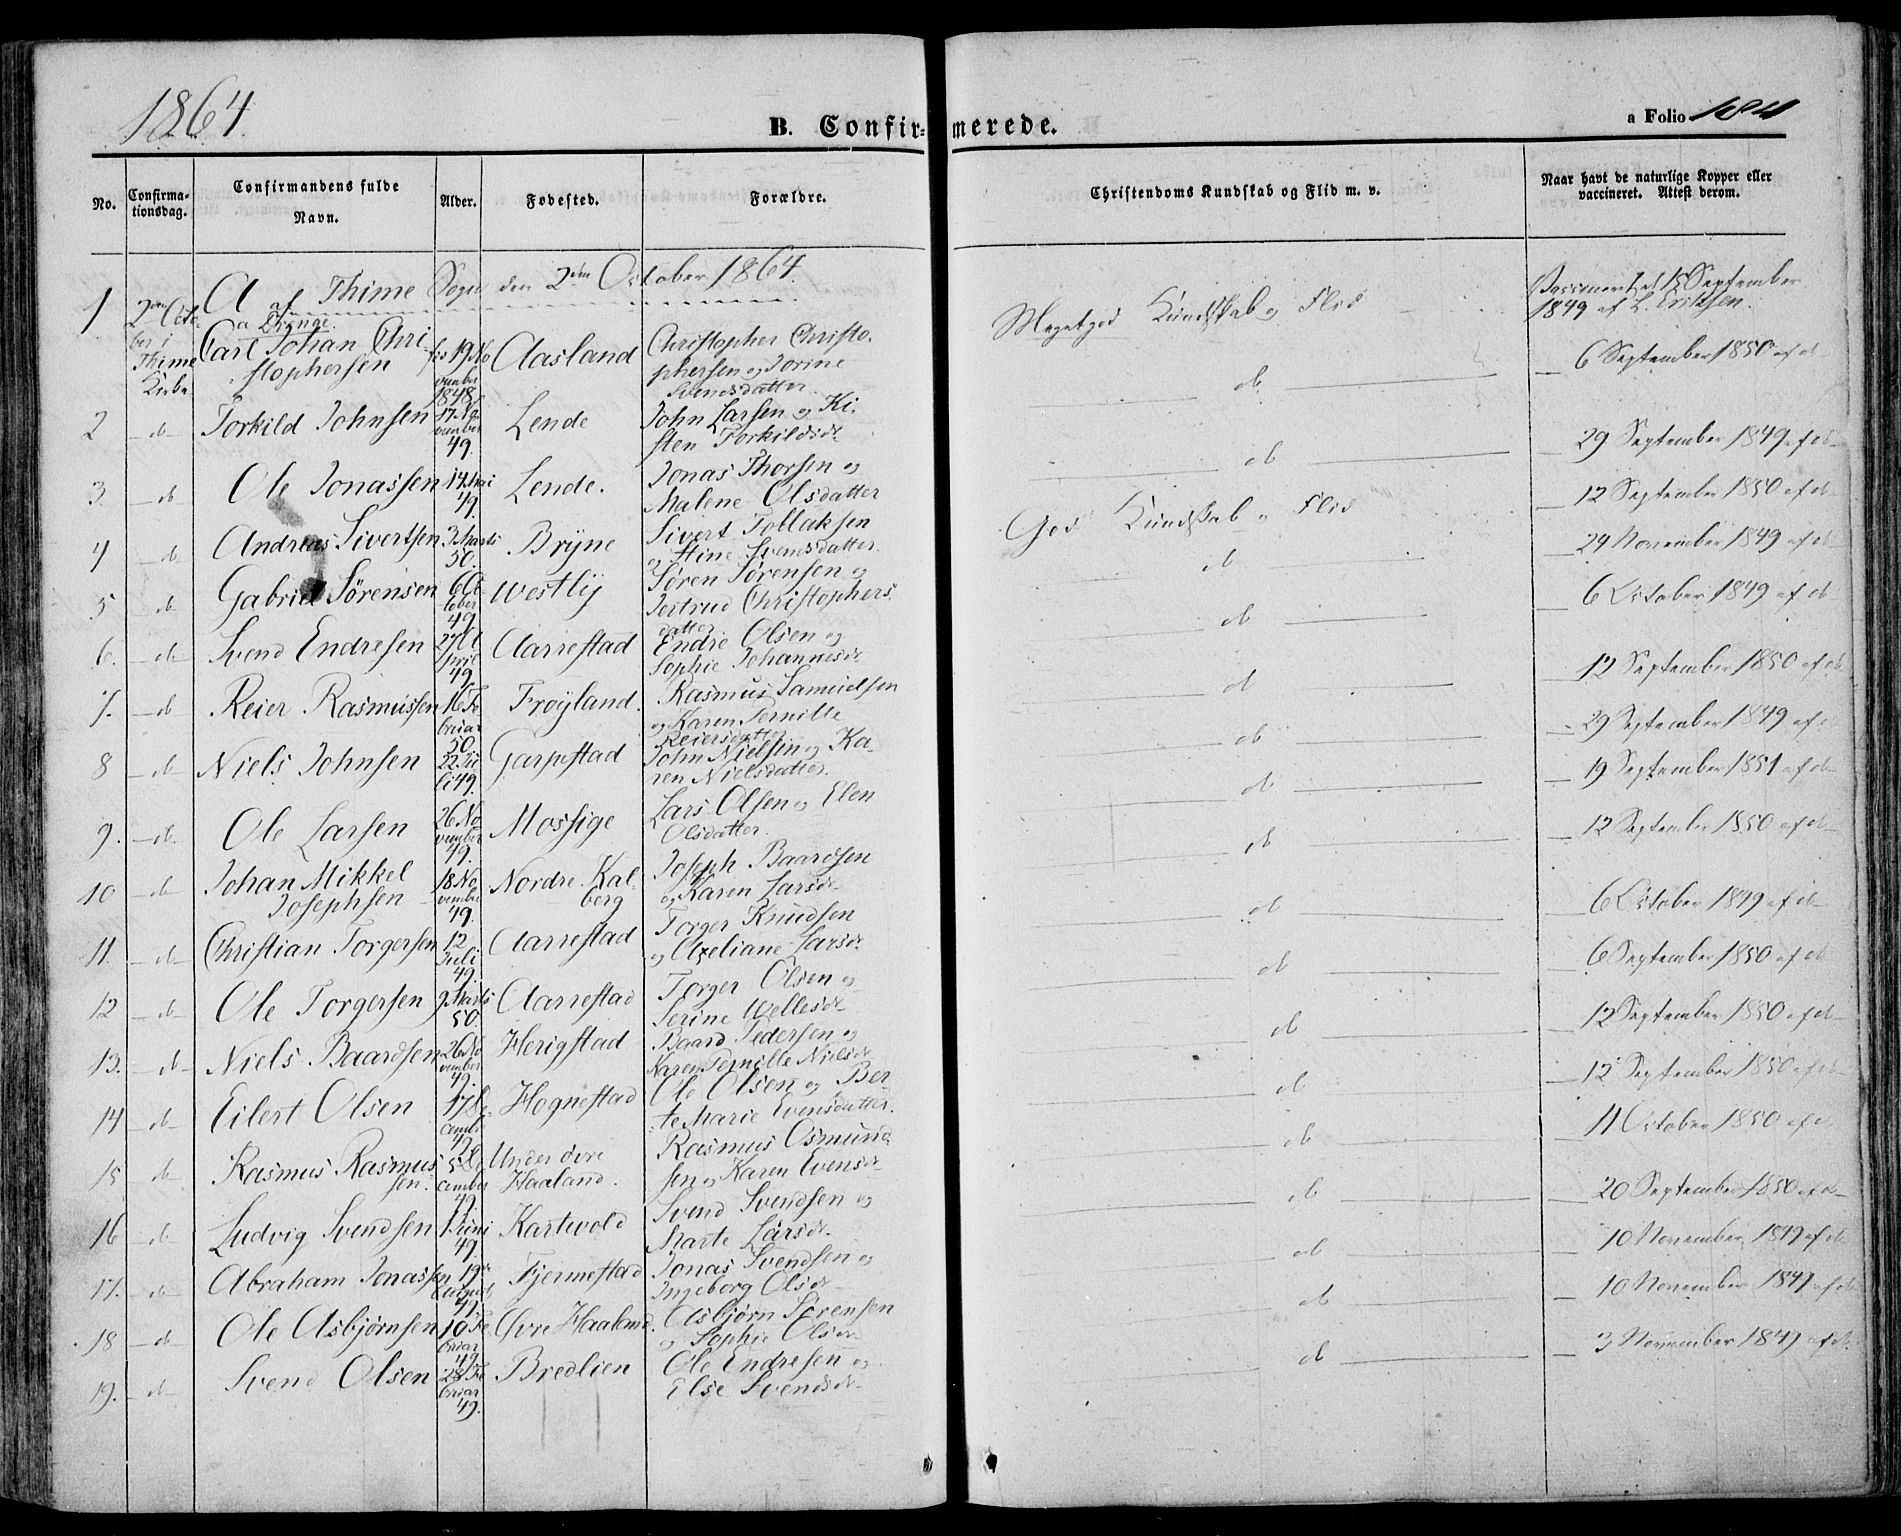 1864.
B. Confir-merede.
a Folio 184
No.
Confirma-
tionsdag.
Confirmandens fulde
Navn.
Alder.
Fødested.
Forældre.
Christendoms Kundskab og Flid m. v.
Naar havt de naturlige Kopper eller
vaccineret. Attest derom.
A af Thime Sogn den 2den October 1864.
a Drenge.
1 2den Octo-
ber i
Thime
Kirke
Carl Johan Chri
stophersen
19 No
vember
1848
Aasland
Christopher Christo-
phersen og Torine
Svendsdatter
Megetgod Kundskab og Flid
Vaccineret d 15 September
1849 af L. Eriksen.
2 do Torkild Johnsen 17 No
vember
49. Lende John Larsen og Ki-
sten Torkildsdr
do 6 September 1850 af do
3. do Ole Jonassen 14 Mai
49. Lende. Jonas Thorsen og
Malene Olsdatter
do 29 September 1849 af do
4 do Andreas Sivertsen 3 Marts
50. Bryne Sivert Tollaksen
og Stine Svensdatter.
God Kundskab og Flid 12 September 1850 af do
5 do Gabriel Sørensen 6 Oc
tober
49 Westly Søren Sørensen og
Jertrud Christophers
datter
do 24 November 1849 af do
6. do Svend Endresen 27 A
pril
49. Aarrestad Endre Olsen og
Sophie Johannesdr
do 6 October 1849 af do
7. do Reier Rasmussen 16 Fe
bruar
50. Frøyland. Rasmus Samuelsen
og Karen Pernille
Reiersdatter
do 12 September 1850 af do
8 do Niels Johnsen 22 Ju
li 49. Garpestad John Nielsen og Ka-
ren Nielsdatter.
do 29 September 1849 af do
9. do Ole Larsen 26 No
vember
49. Mossige Lars Olsen og Elen
Olsdatter.
do 19 September 1851 af do
10 do Johan Mikkel
Josephsen 18 No
vember
49. Nordre Kal-
berg Joseph Baardsen
og Karen Larsdr
do 12 September 1850 af do
11. do Christian Torgersen 12
Juli
49. Aarrestad Torger Knudsen
og Axeliane Larsdr
do 6 October 1849 af do
12 do Ole Torgersen 9 Marts
50. Aarrestad Torger Olsen og
Serine Wellesdr
do 6 September 1850 af do
13. do Niels Baardsen 26 No
vember
49. Herigstad Baard Pedersen og
Karen Pernille Nielsdr
do 12 September 1850 af do
14 do Eilert Olsen 17 De
cemb
49 Hognestad Ole Olsen og Ber-
te Marie Evensdatter.
do 12 September 1850 af do
15 do Rasmus Rasmus
sen. 5 De
cember
49. Under øvre
Haaland. Rasmus Osmund-
sen og Karen Evensdr
do 11 October 1850 af do
16 do Ludvig Svendsen 1 Juni
49. Kartevold Svend Svendsen og
Marte Larsdr.
do 20 September 1850 af do
17. do Abraham Jonassen 19de
August
49. Fjermestad Jonas Svendsen og
Ingeborg Olsdr
do 10 November 1849 af do
18 do Ole Asbjørnsen 10 Fe
bruar
49 Øvre Haaland. Asbjørn Sørensen
og Sophie Olsdr
do 10 November 1849 af do
19. do Svend Olsen 28 Fe
bruar
49. Bredlien Ole Endresen og
Else Svendsdr
do 3 November 1849 af do